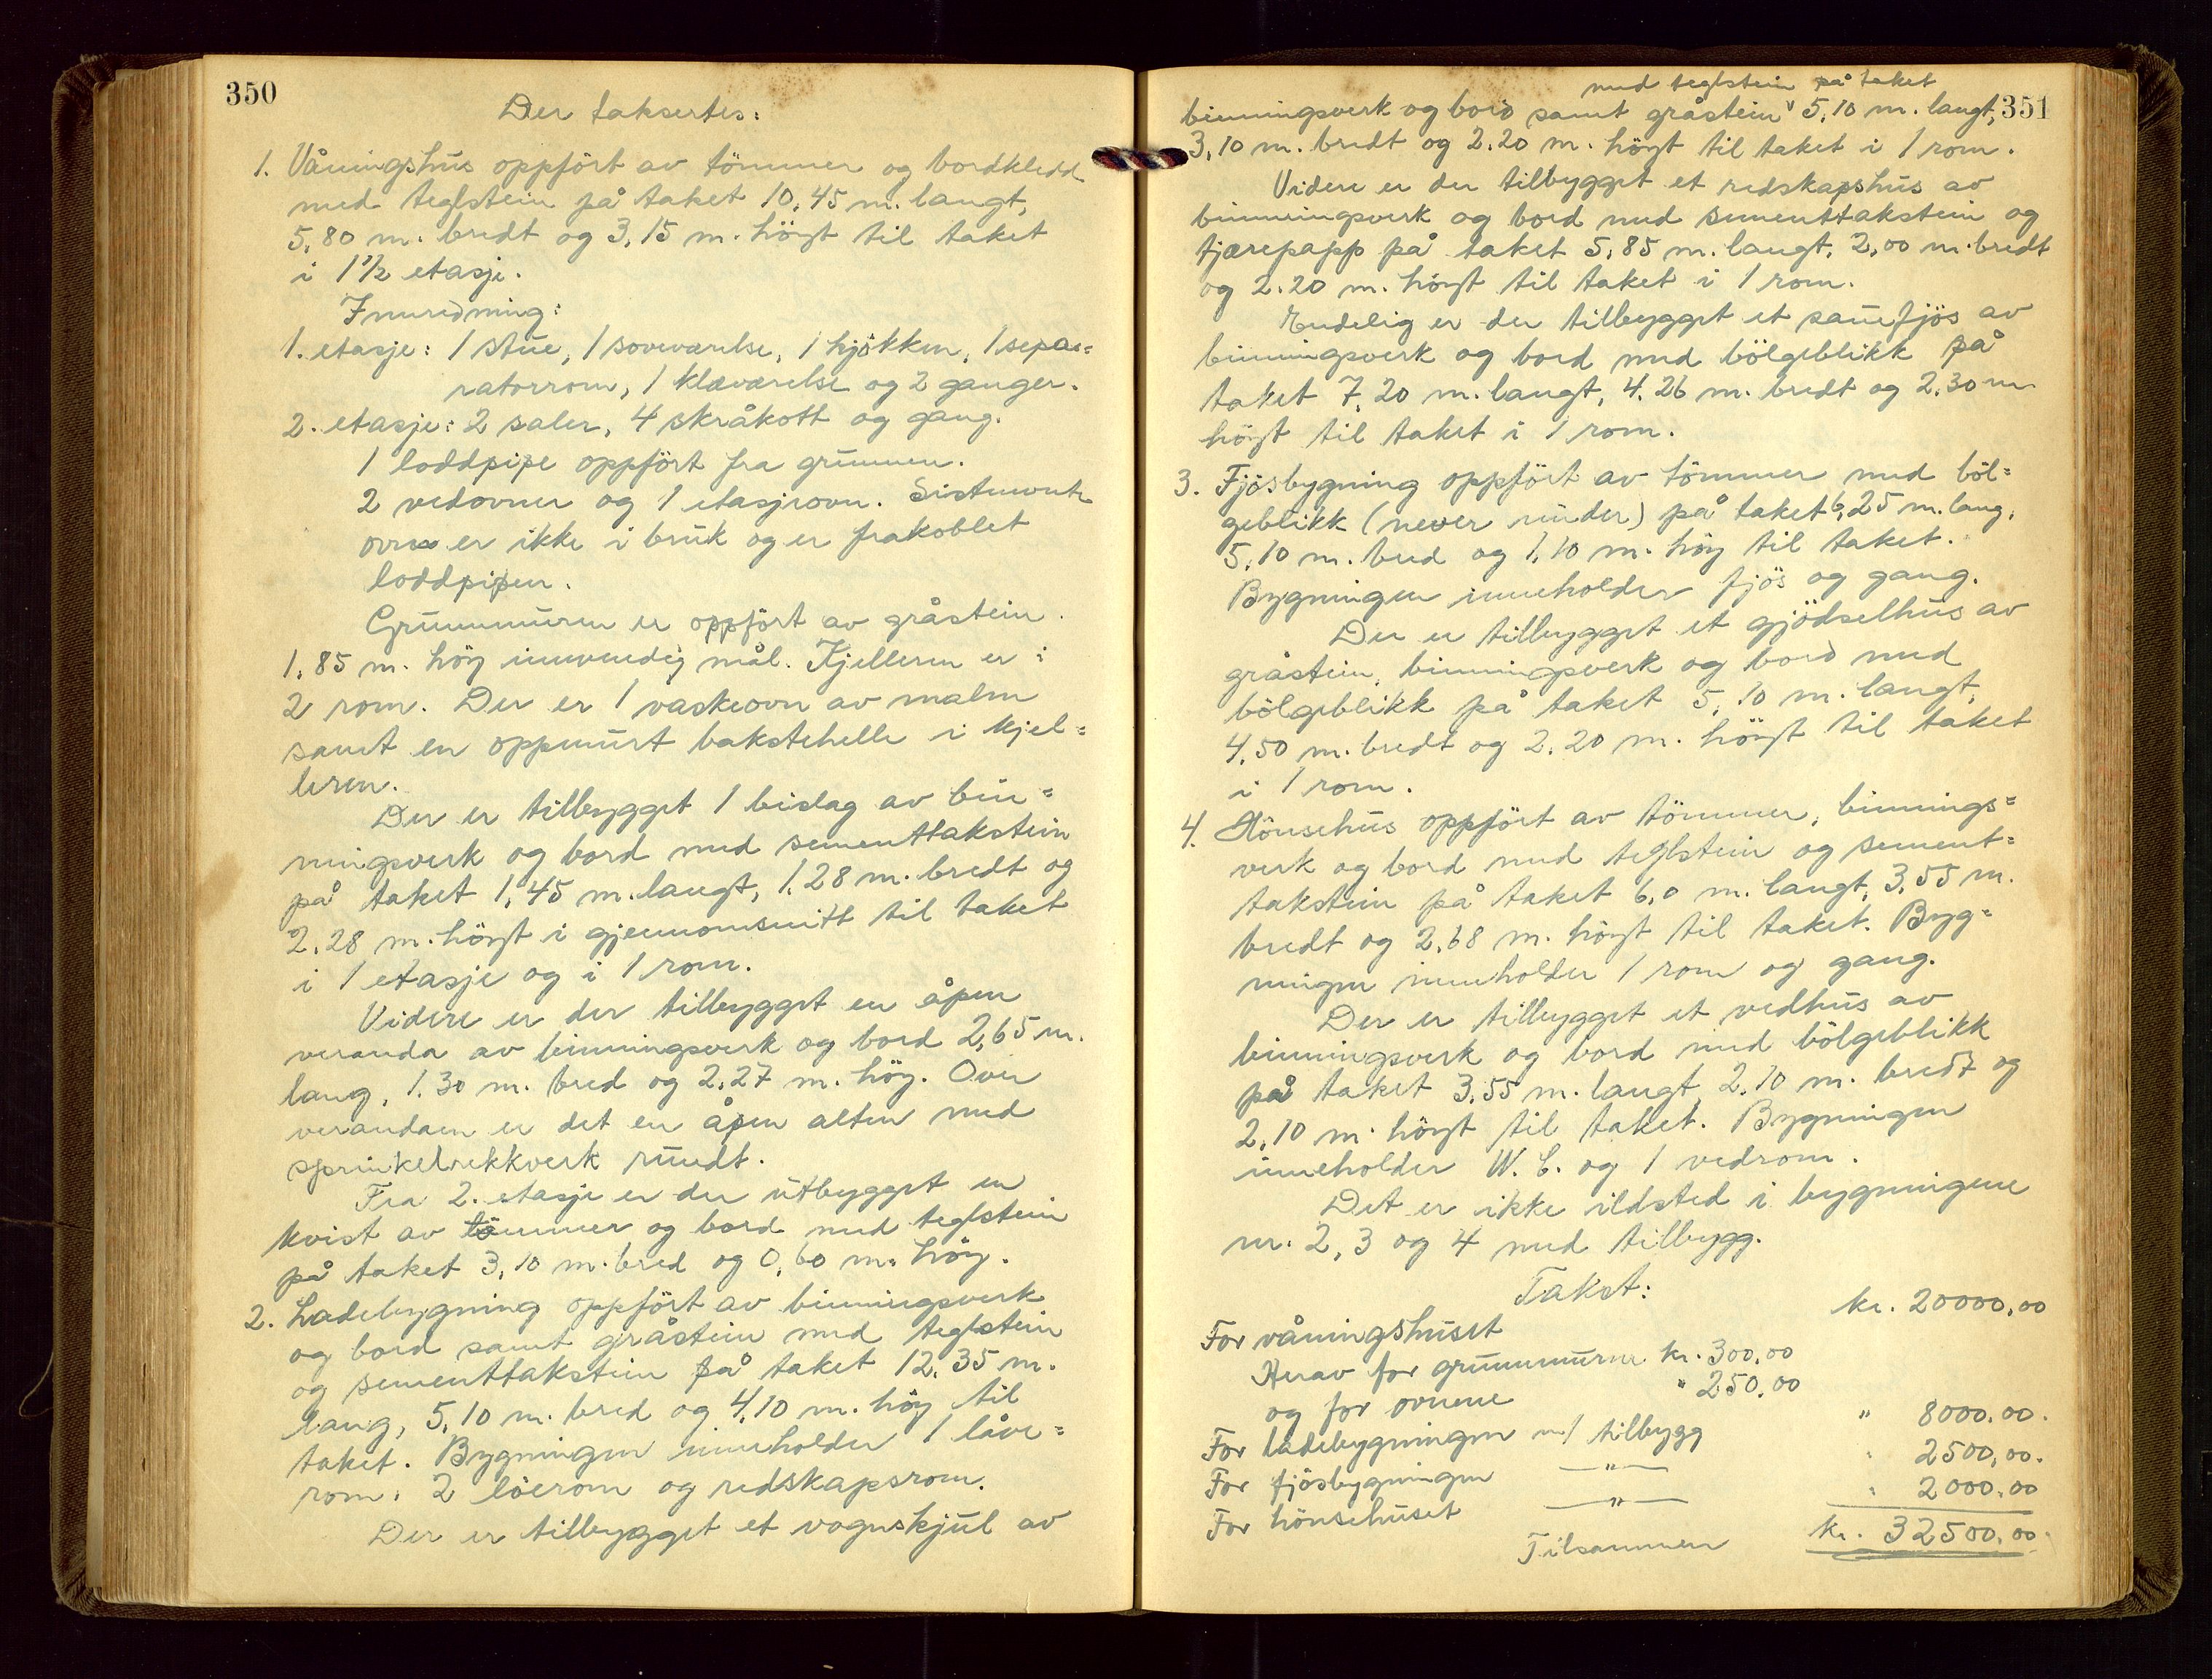 350
Der taksertes:
1. Våningshus oppført av tömmer og bordkledd
med teglstein på taket 10,45 m. langt,
5,80 m. bredt og 3,15 m. höyt til taket
i 1 1/2 etasje.
Innredning:
1. etasje: 1 stue, 1 soveværelse, 1 kjökken, 1 sepa=
ratorrom, 1 kleværelse og 2 ganger.
2. etasje: 2 saler, 4 skråkott og gang.
1 loddpipe oppfört fra grunnen.
2 vedovner og 1 etasjeovn. Sistnevnte
ovn er ikke i bruk og er frakoblet
loddpipen.
Grunnmuren er oppfört av gråstein.
1,85 m. höy innvendig mål. Kjelleren er i
2 rom. Der er 1 vaskeovn av malm
samt en oppmurt bakstehelle i kjel=
leren.
Der er tilbygget 1 bislag av bin=
ningsverk og bord med sementtakstein
på taket 1,45 m. langt, 1,28 m. bredt og
2,28 m. höyt i gjennomsnitt til taket
i 1 etasje og i 1 rom.
Videre er der tilbygget en åpen
veranda av binningsverk og bord 2,65 m.
lang, 1.30 m. bred og 2,27 m. höy. Over
verandaen er det en åpen alten med
sprinkelrekkverk rundt.
Fra 2. etasje er der utbygget en
kvist av tömmer og bord med teglstein
på taket 3,10 m. bred og 0,60 m. höy.
2. Ladebygning oppfört av binningsverk
og bord samt gråstein med teglstein
og sementtakstein på taket 12,35 m.
lang, 5,10 m. bred og 4,10 m. höy til
taket. Bygningen inneholder 1 låve=
rom, 2 löerom og redskapsrom.
Der er tilbygget et vognskjul av
351
med teglstein på taket
binningsverk og bord samt gråstein ᵛ 5,10 m. langt,
3,10 m. bredt og 2.20 m. höyt til taket i 1 rom.
Videre er der tilbygget et redskapshus av
binningsverk og bord med sementtakstein og
tjærepapp på taket 5,85 m. langt, 2,00 m. bredt
og 2.20 m. höyt til taket i 1 rom.
Endelig er der tilbygget et sauefjös av
binningsverk og bord med bölgeblikk på
taket 7,20 m. langt, 4.26 m. bredt og 2,30 m
höyt til taket i 1 rom.
3. Fjösbygning oppfört av tömmer med böl=
geblikk (never under) på taket 6,25 m. lang,
5,10 m. bred og 1,10 m. höy til taket.
Bygningen inneholder fjös og gang.
Der er tilbygget et gjödselhus av
gråstein, binningsverk og bord med
bölgeblikk på taket 5,10 m. langt,
4,50 m. bredt og 2.20 m. höyt til taket
i 1 rom.
4. Hönsehus oppfört av tömmer, binnings=
verk og bord med teglstein og sement=
takstein på taket 6,0 m. langt, 3,55 m.
bredt og 2,68 m. höyt til taket. Byg=
ningen inneholder 1 rom og gang.
Der er tilbygget et vedhus av
binningsverk og bord med bölgeblikk
på taket 3,55 m. langt, 2.10 m. bredt og
2,10 m. höyt til taket. Bygningen
inneholder W. C. og 1 vedrom.
Det er ikke ildsted i bygningene
nr. 2, 3 og 4 med tilbygg.
Takst:
For våningshuset kr. 20000,00
Herav for grunnmuren kr. 300,00
og for ovnene " 250,00
For ladebygningen m/ tilbygg " 8000.00.
For fjösbygningen —"— " 2500,00.
For hönsehuset —"— " 2000,00
Tilsammen kr. 32500,00.